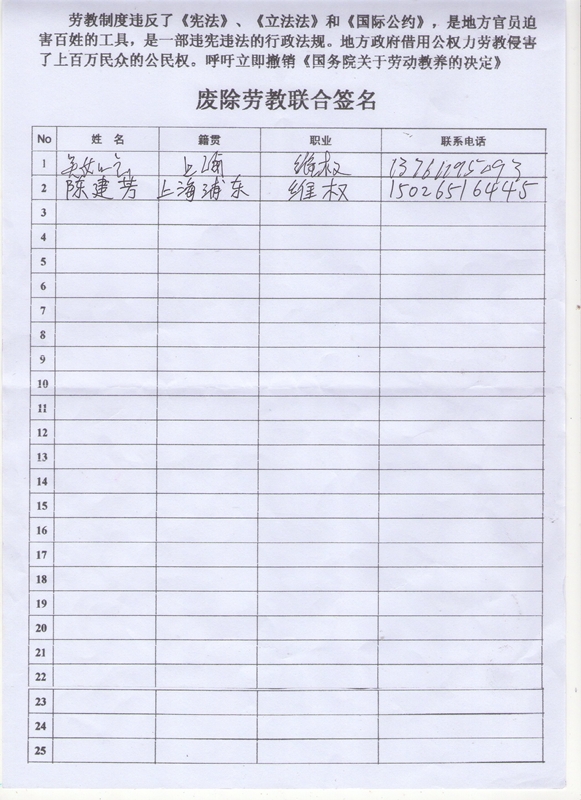 劳教制度违反了《宪法》、《立法法》和《国际公约》，是地方官员迫
害百姓的工具，是一部违宪违法的行政法规。地方政府借用公权力劳教侵害
了上百万民众的公民权。呼吁立即撤销《国务院关于劳动教养的决定》
废除劳教联合签名
No 姓 名 籍贯 职业 联系电话
1 上海 维权
2 陈建芳 上海浦东 维权 15026516445
3
4
5
6
7
8
9
10
11
12
13
14
15
16
17
18
19
20
21
22
23
24
25